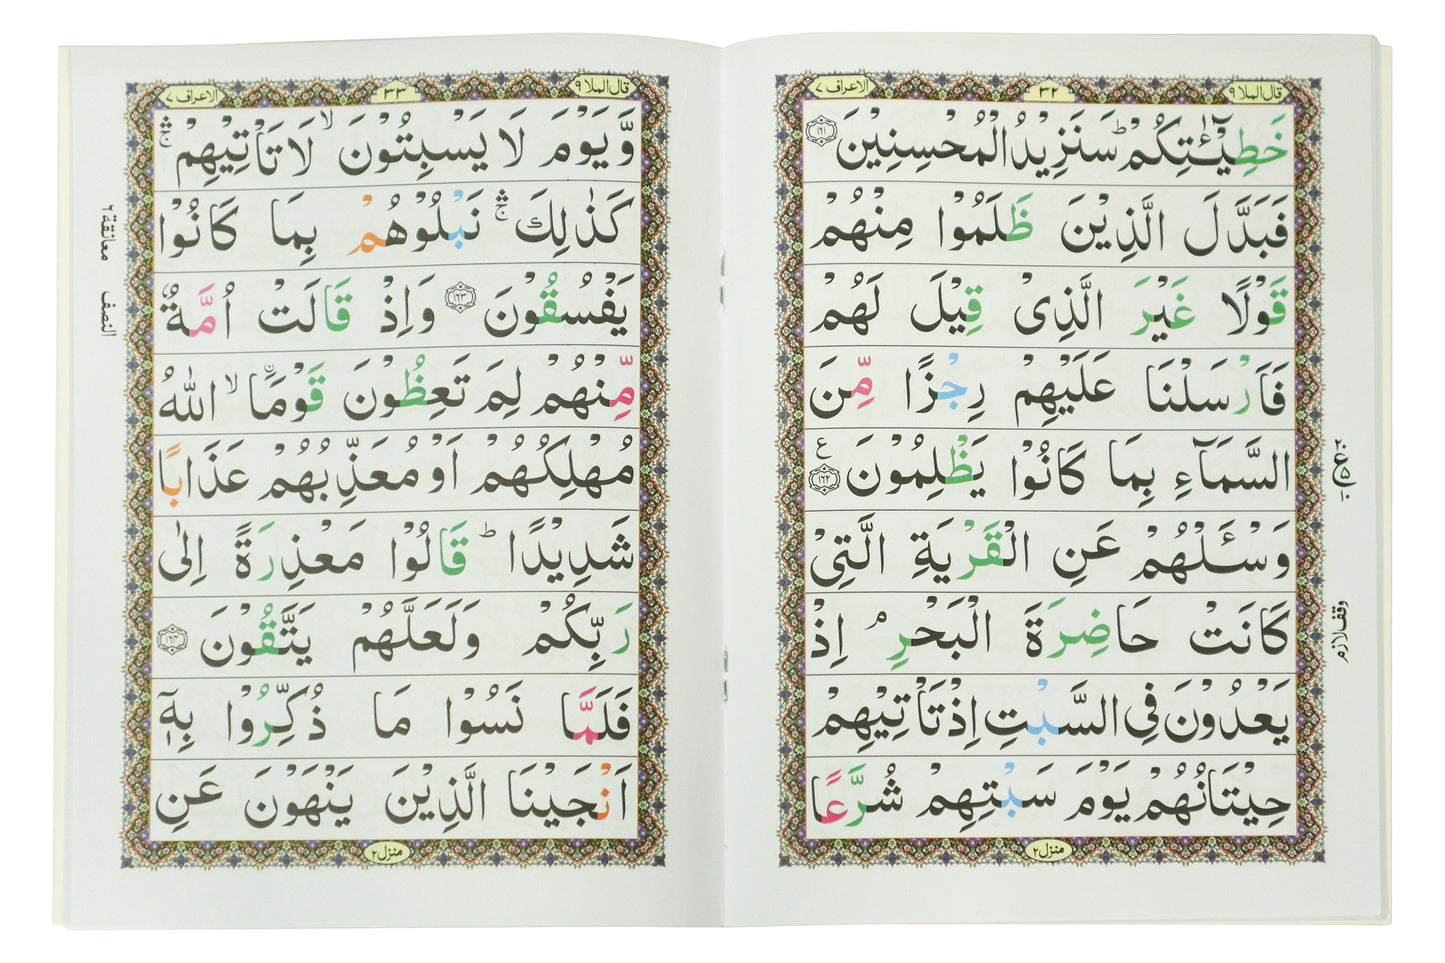 قال الملا ٩
٣٢
الاعراف ٧
خَطِيْٓـٰٔتِكُمْ ؕ سَنَزِيْدُ الْمُحْسِنِيْنَ ﴿۱۶۱﴾
فَبَدَّلَ الَّذِيْنَ ظَلَمُوْا مِنْهُمْ
قَوْلًا غَيْرَ الَّذِىْ قِيْلَ لَهُمْ
فَاَرْسَلْنَا عَلَيْهِمْ رِجْزًا مِّنَ
السَّمَآءِ بِمَا كَانُوْا يَظْلِمُوْنَ ﴿۱۶۲﴾ ع
وَسْـَٔلْهُمْ عَنِ الْقَرْيَةِ الَّتِىْ
كَانَتْ حَاضِرَةَ الْبَحْرِ ۘ اِذْ
يَعْدُوْنَ فِى السَّبْتِ اِذْ تَاْتِيْهِمْ
حِيْتَانُهُمْ يَوْمَ سَبْتِهِمْ شُرَّعًا
منزل ٢
وقف لازم
قال الملا ٩
٣٣
الاعراف ٧
وَّيَوْمَ لَا يَسْبِتُوْنَ ۙ لَا تَاْتِيْهِمْ ۛۚ
كَذٰلِكَ ۛۚ نَبْلُوْهُمْ بِمَا كَانُوْا
يَفْسُقُوْنَ ﴿۱۶۳﴾ وَاِذْ قَالَتْ اُمَّةٌ
مِّنْهُمْ لِمَ تَعِظُوْنَ قَوْمَاۨ ۙ اللّٰهُ
مُهْلِكُهُمْ اَوْ مُعَذِّبُهُمْ عَذَابًا
شَدِيْدًا ؕ قَالُوْا مَعْذِرَةً اِلٰى
رَبِّكُمْ وَلَعَلَّهُمْ يَتَّقُوْنَ ﴿۱۶۴﴾
فَلَمَّا نَسُوْا مَا ذُكِّرُوْا بِهٖٓ
اَنْجَيْنَا الَّذِيْنَ يَنْهَوْنَ عَنِ
منزل ٢
معانقة ٦
النصف